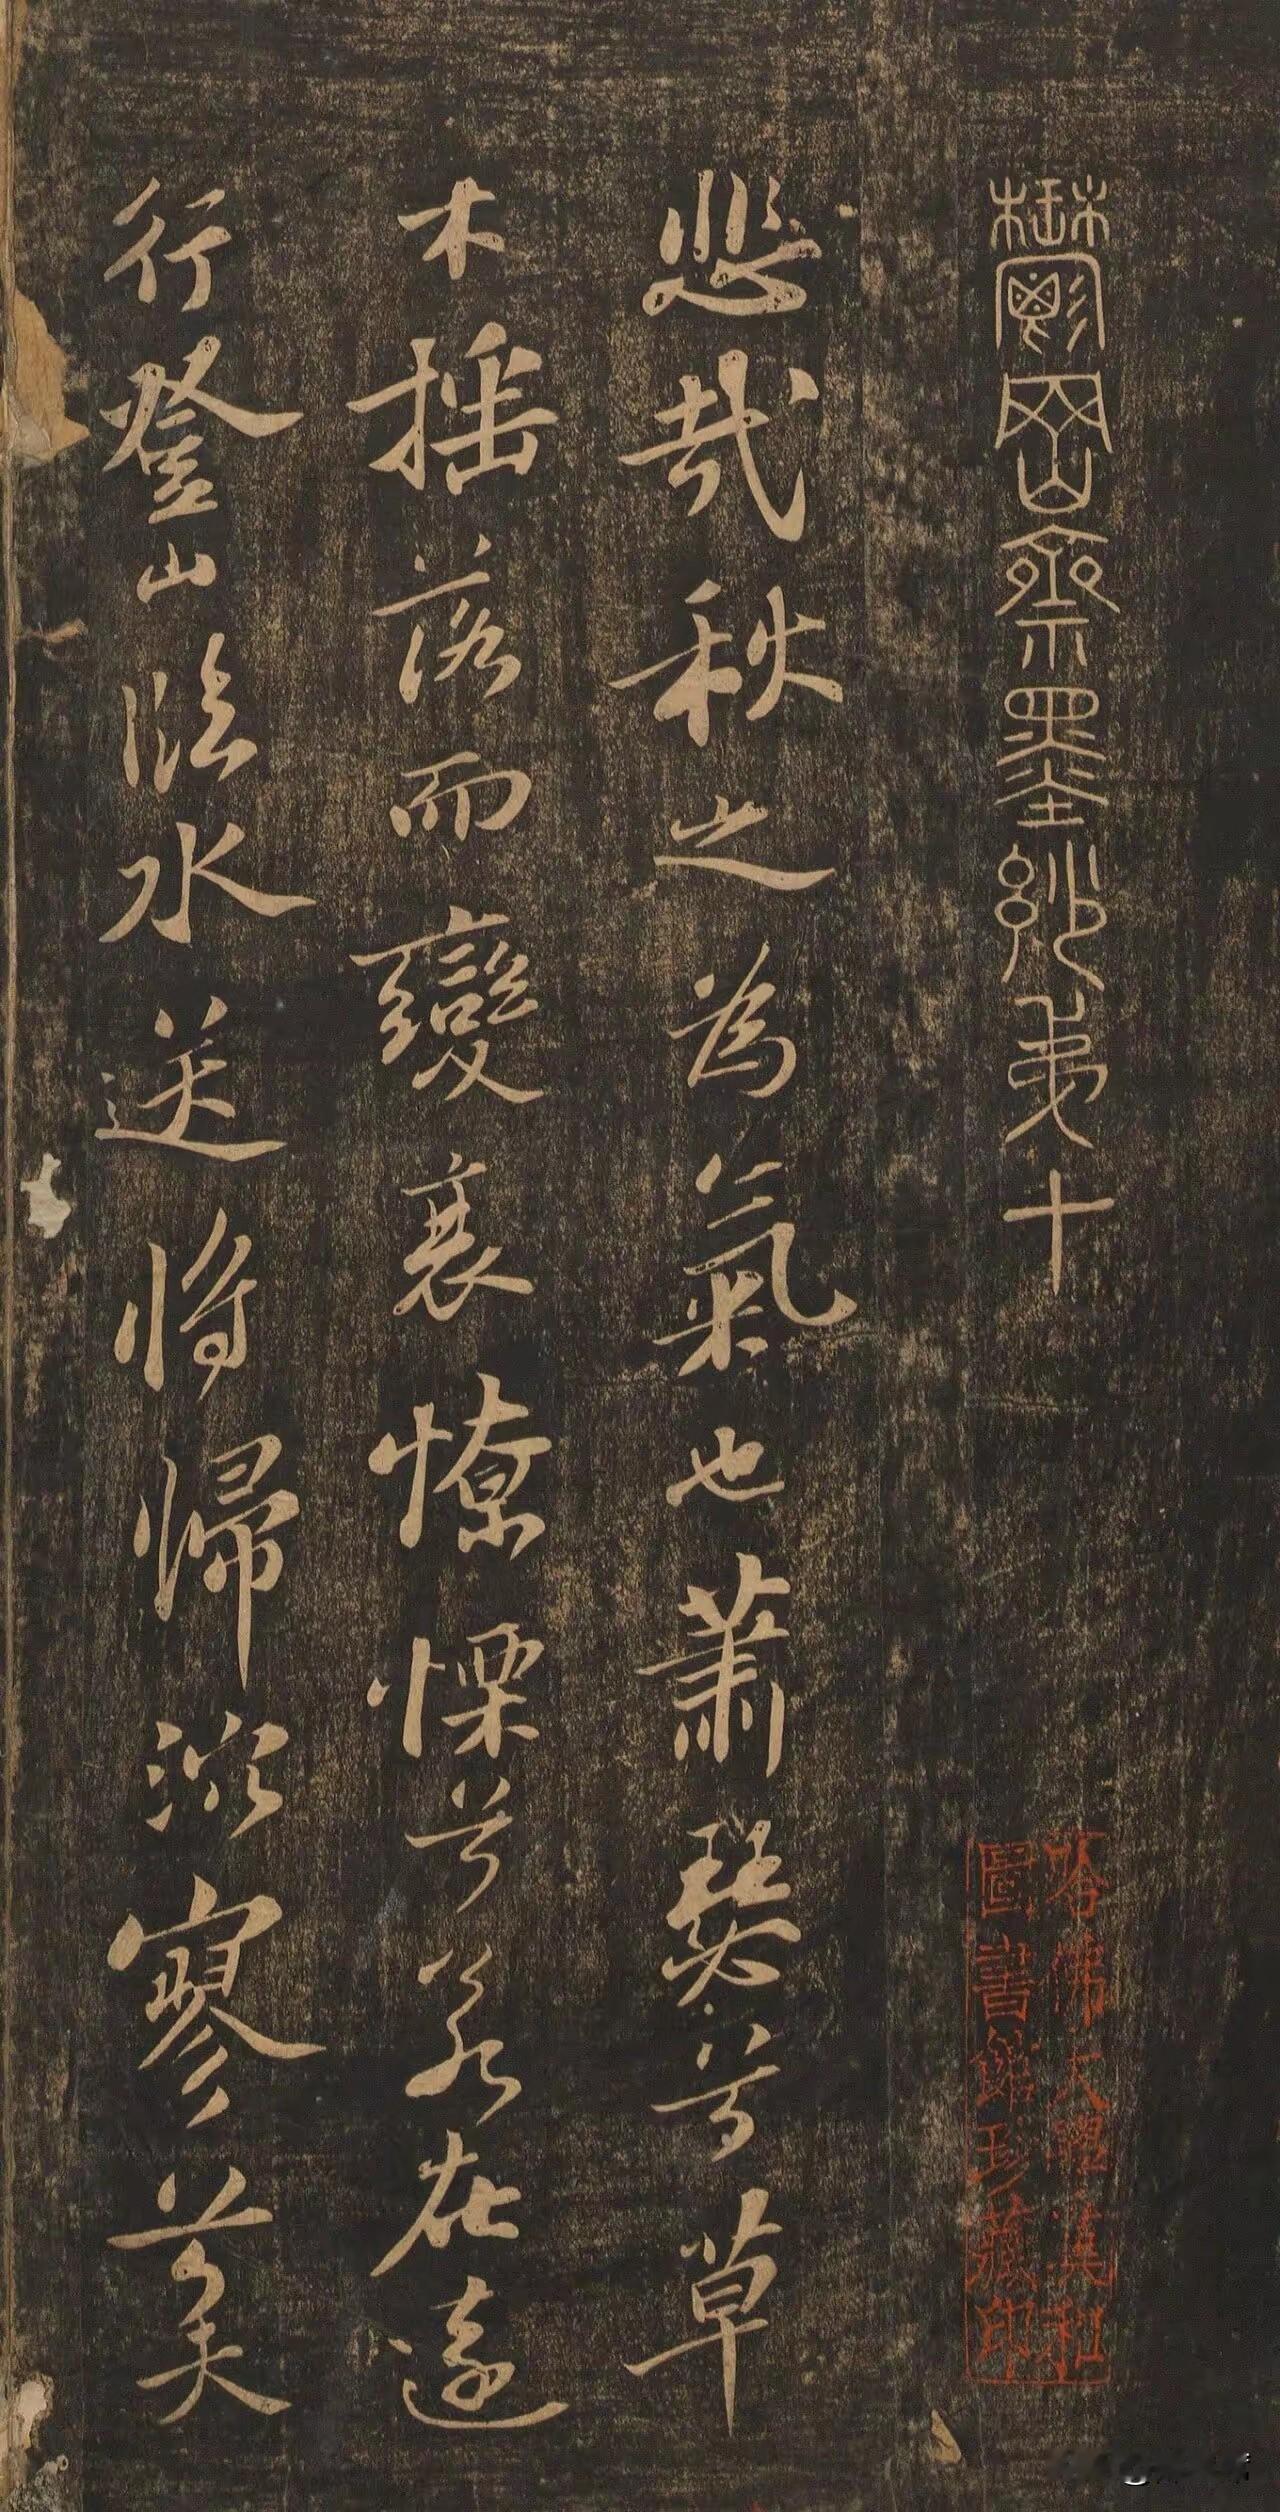 鬱岡齋墨妙弟十
悲哉秋之為氣也蕭瑟兮草
木搖落而變衰憭慄兮若在遠
行登山臨水送將歸泬寥兮天
哈佛大學漢和
圖書館珍藏印